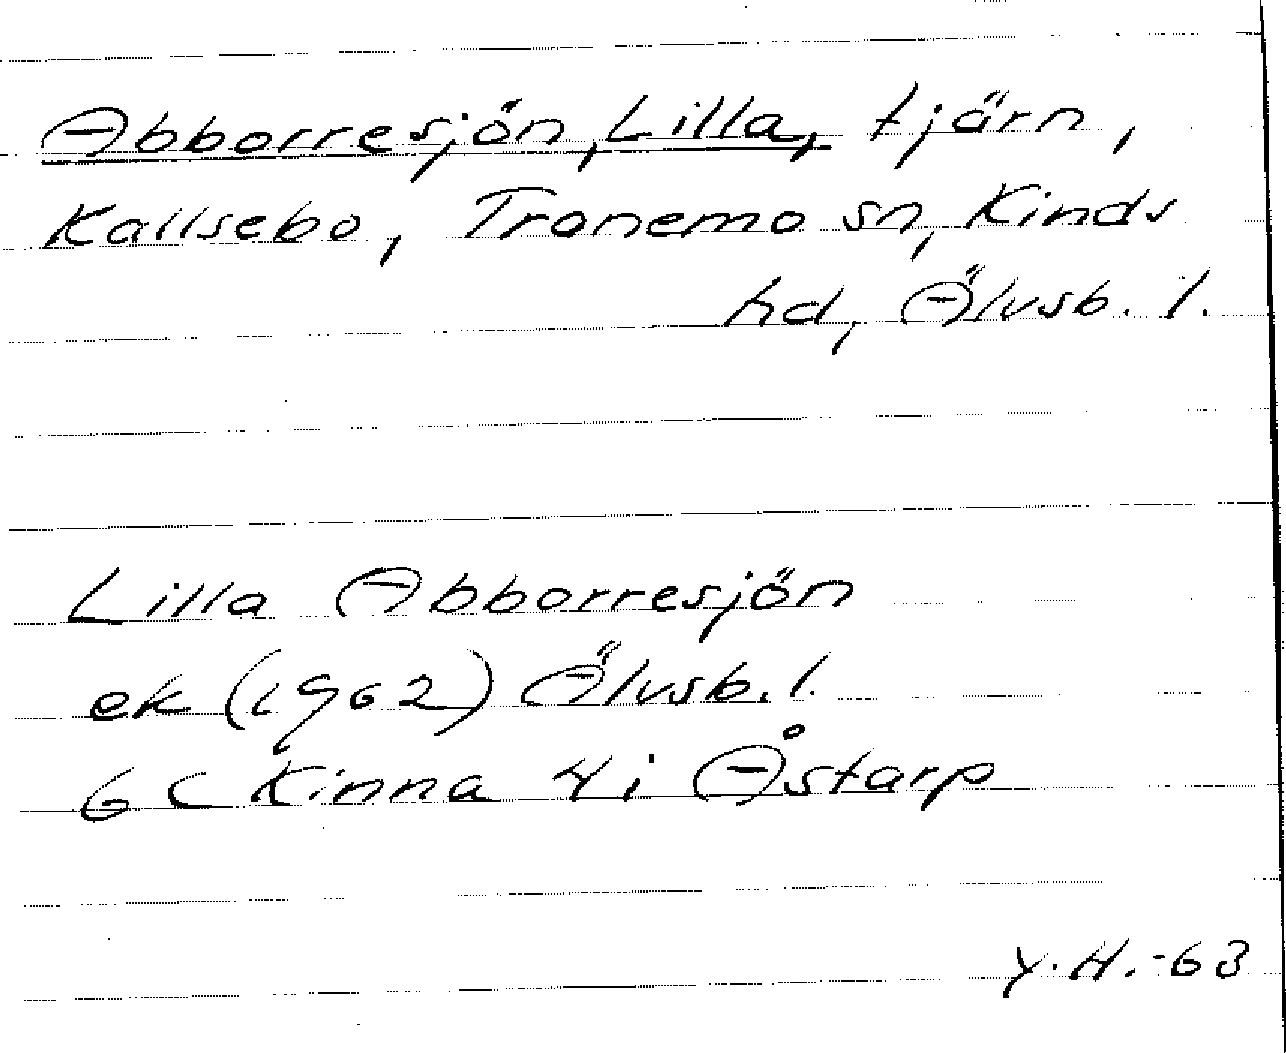 Abborresjön, Lilla, tjärn,
Kallsebo, Tranemo sn, Kinds
hd, Älvsb. l.
Lilla Abborresjön
ek (1962) Älvsb. l.
6 C Kinna 4 i Åstarp
Y.H.-63